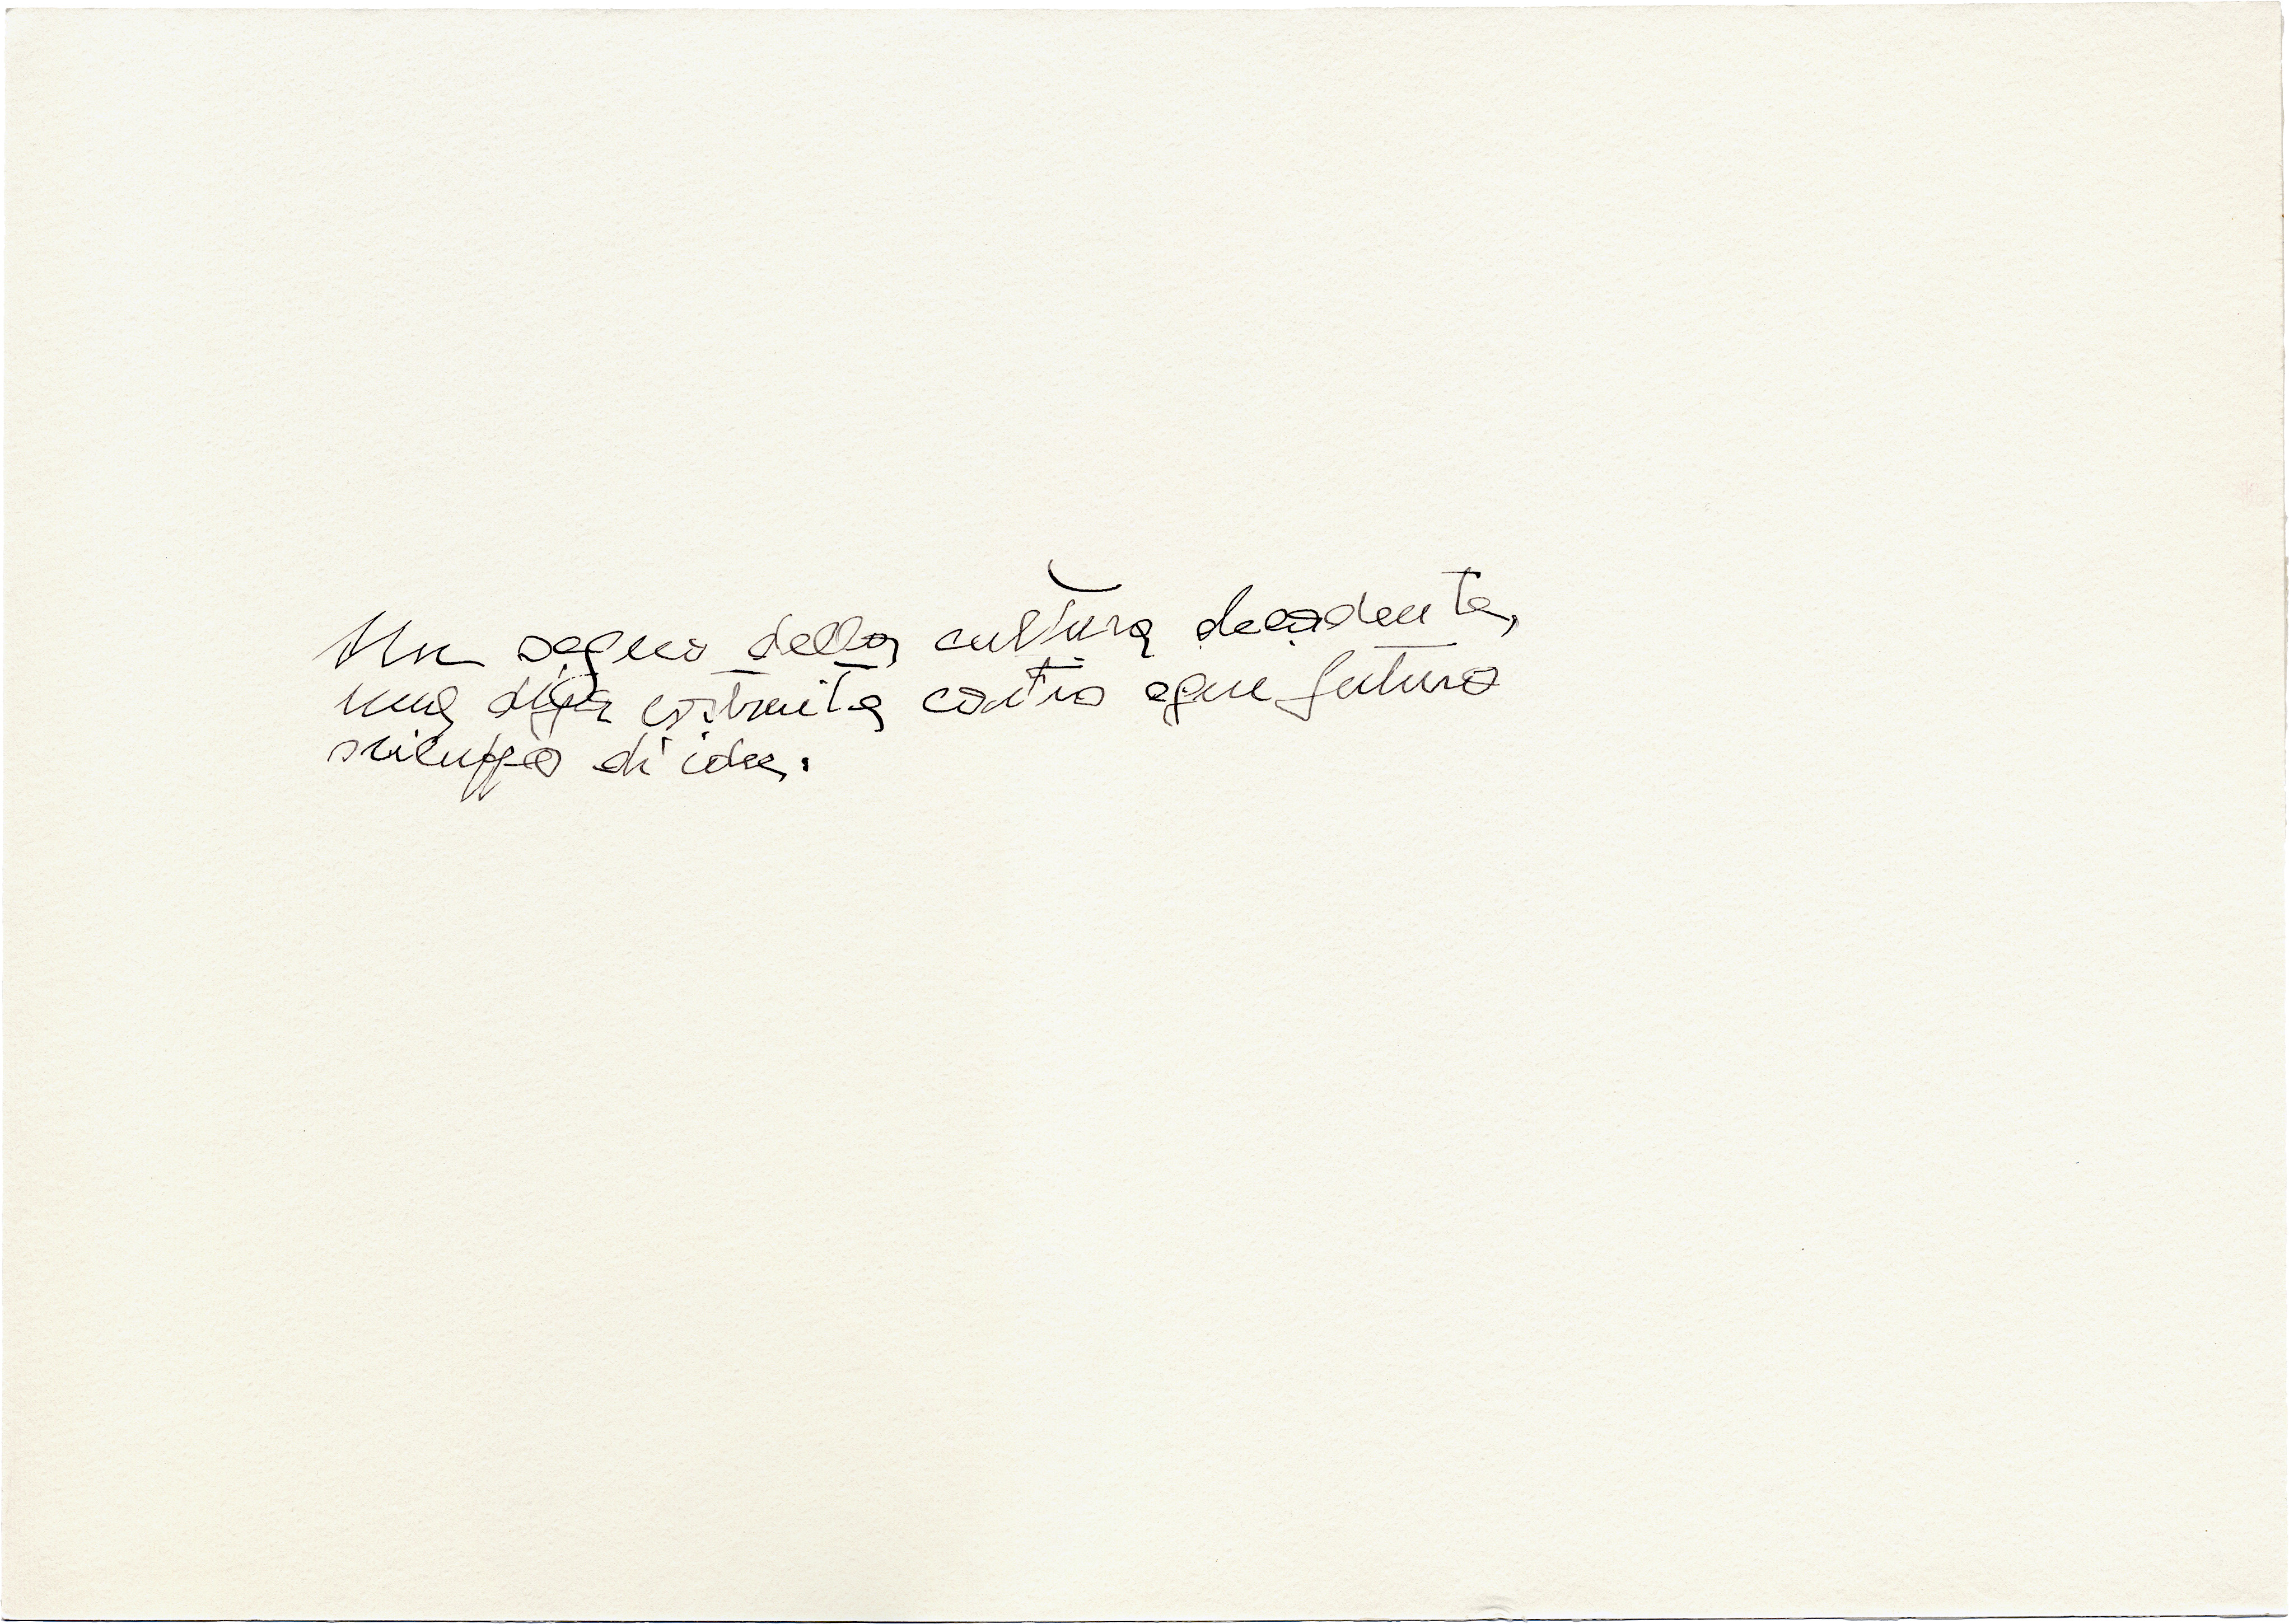 Un segno della cultura decadente,
una diga costruita contro ogni futuro
sviluppo di idee.